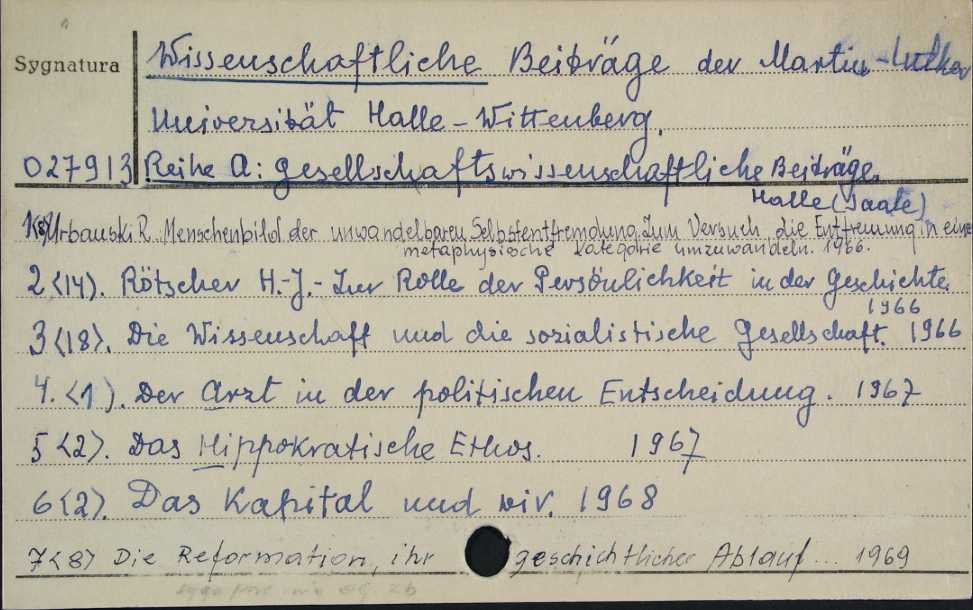 Sygnatura
Wissenschaftliche Beiträge der Martin-Luther
Universität Halle-Wittenberg.
027913 Reihe A: Gesellschaftswissenschaftliche Beiträge.
Halle (Saale)
Urbanski R. Menschenbild der unwandelbaren Selbstentfremdung. Zum Versuch, die Entfremung in eine
metaphysische Kategorie umzuwandeln. 1966.
2<14>. Rötscher H.-J.- Zur Rolle der Persönlichkeit in der Geschichte.
1966
3<18>. Die Wissenschaft und die sozialistische Gesellschaft. 1966
4.<1>. Der Arzt in der politischen Entscheidung. 1967
5<2>. Das Hippokratische Ethos. 1967
6<2>. Das Kapital und wir. 1968
7<8> Die Reformation, ihr geschichtlicher Ablauf... 1969